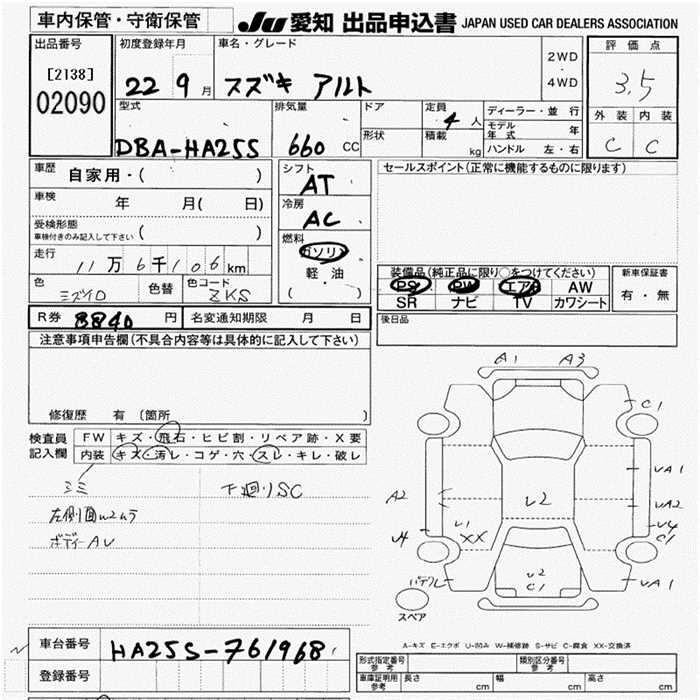 車内保管・守衛保管
JU 愛知 出品申込書 JAPAN USED CAR DEALERS ASSOCIATION
出品番号
[2138]
02090
初度登録年月
22 9月
車名・グレード
スズキ アルト
2WD
・
4WD
評価点
3.5
外装 内装
C C
型式
DBA-HA25S
排気量
660 CC
ドア
形状
定員 4 人
積載 kg
ディーラー・並 行
モデル年式 年
ハンドル 左・右
車歴 自家用・( )
車検 年 月( 日)
受検形態
車検付きのみ記入して下さい ( )
走行 11万6千106km
色 ミズイロ 色替 色コード ZKS
シフト AT
冷房 AC
燃料
ガソリン
軽・油
( )
セールスポイント(正常に機能するものに限ります)
装備品(純正品に限り○をつけてください)
PS PW エアB AW
SR ナビ TV カワシート
新車保証書
有・無
後日品
R券 8840 円 名変通知期限 月 日
注意事項申告欄(不具合内容等は具体的に記入して下さい)
修復歴 有 (箇所 )
検査員記入欄
FW キズ・飛石・ヒビ割・リペア跡・X要
内装 キズ・汚レ・コゲ・穴・スレ・キレ・破レ
下廻りSC
左側面W2ムラ
ボディーAU
A1 A3
C1
UA1
A2 U2 UA2
U1 XX U4 C1
U4
U2
C1
UA1
スペア
A-キズ E-エクボ U-凹み W-補修跡 S-サビ C-腐食 XX-交換済
車台番号 HA25S-761968
登録番号
形式指定番号 参考
類別区分番号 参考
車庫証明用 参考 長さ cm 幅 cm 高さ cm